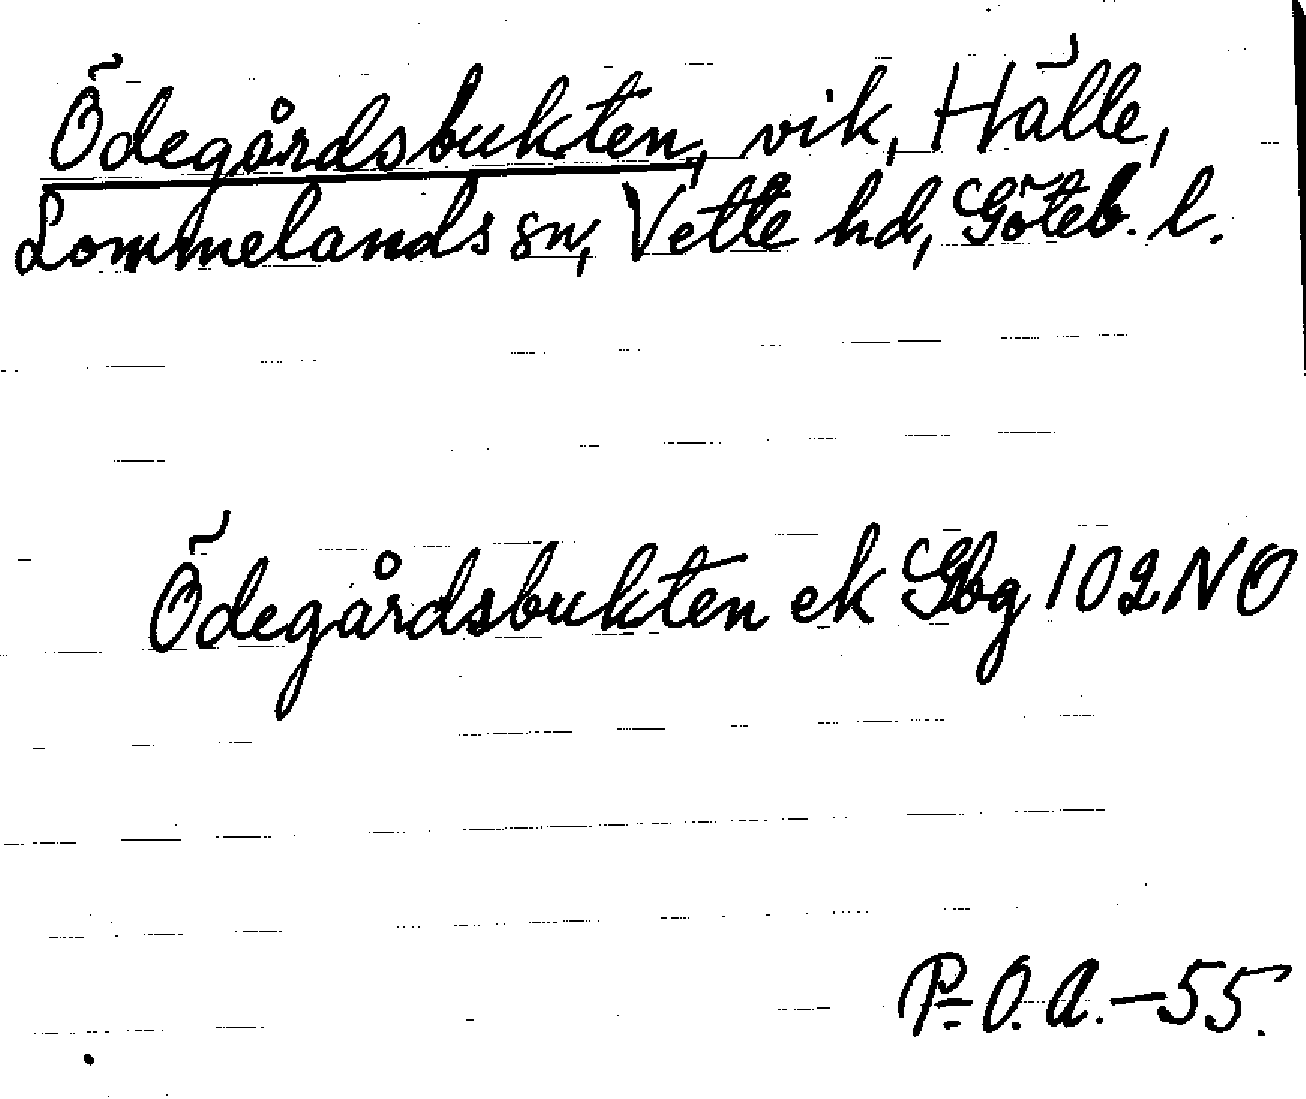 Ödegårdsbukten, vik, Hälle,
Lommelands sn, Vette hd, Göteb. l.
Ödegårdsbukten ek Gbg 102 NO
P-O. A. -55.